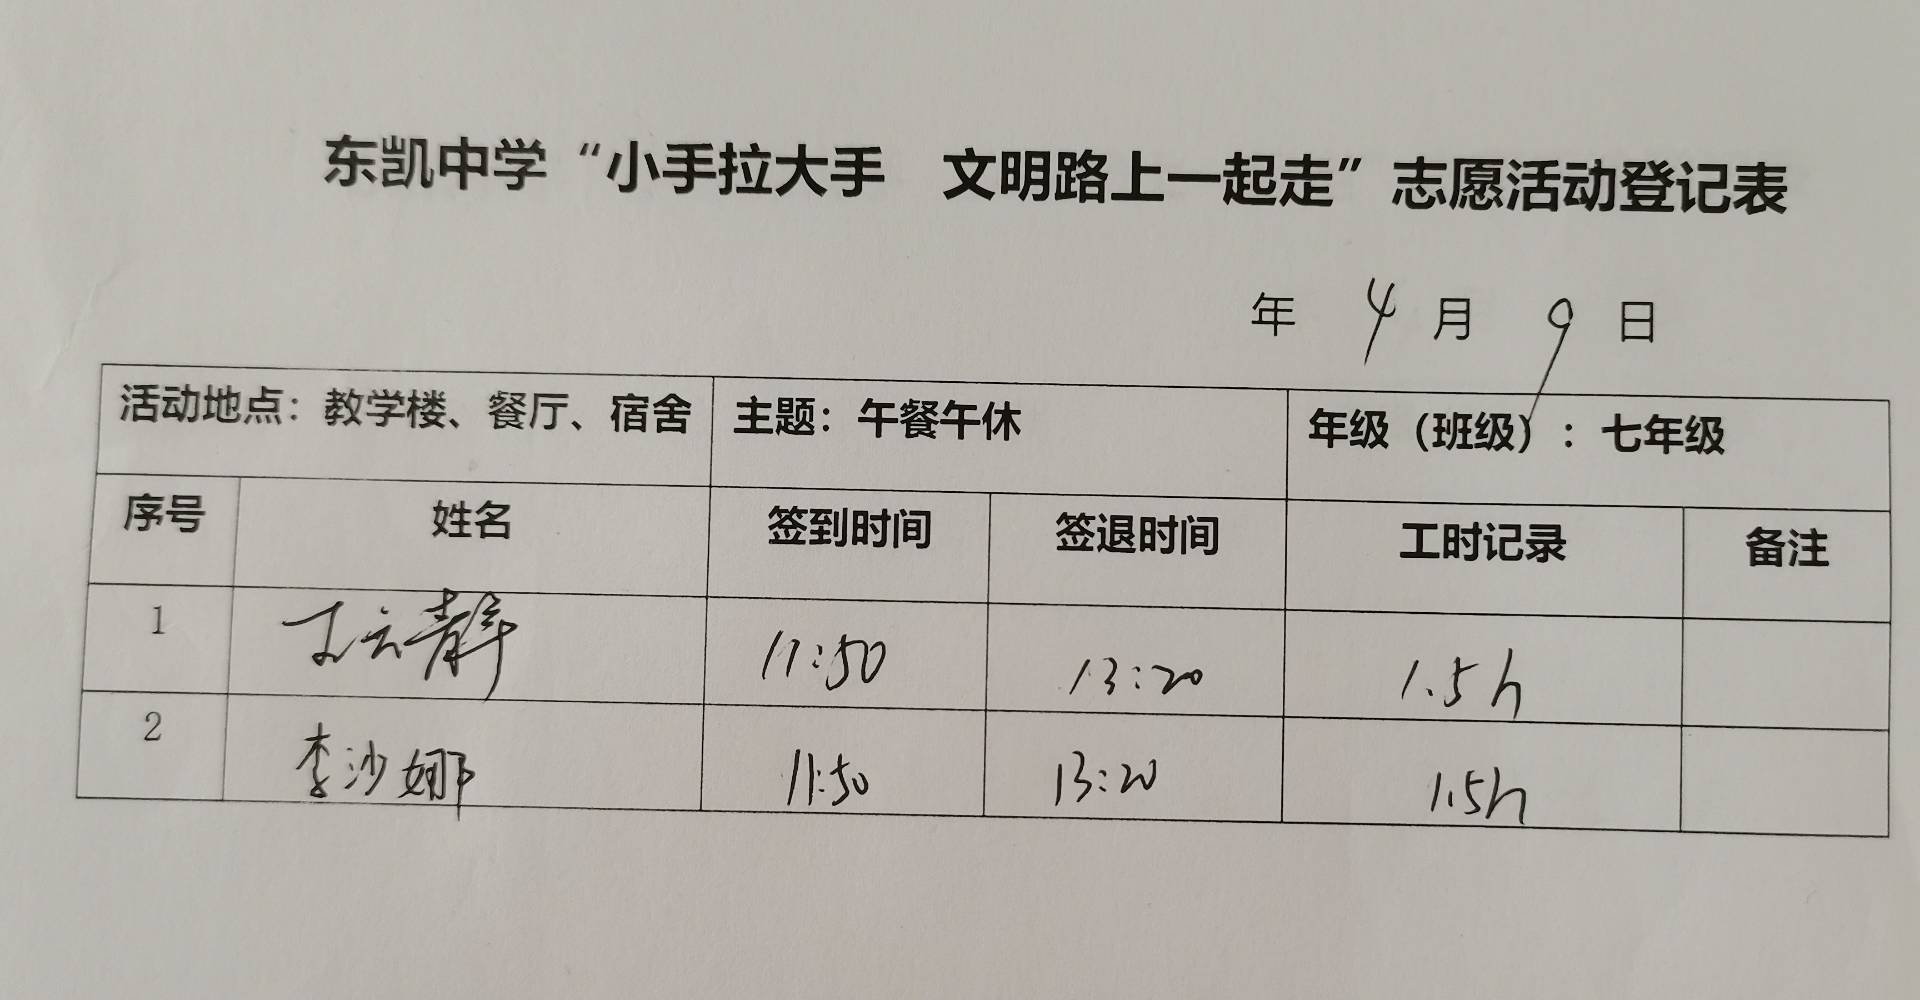 东凯中学“小手拉大手 文明路上一起走”志愿活动登记表
年 4 月 9 日
活动地点：教学楼、餐厅、宿舍 主题：午餐午休 年级（班级）：七年级
序号 姓名 签到时间 签退时间 工时记录 备注
1 王云静 11:50 13:20 1.5h
2 李沙娜 11:50 13:20 1.5h